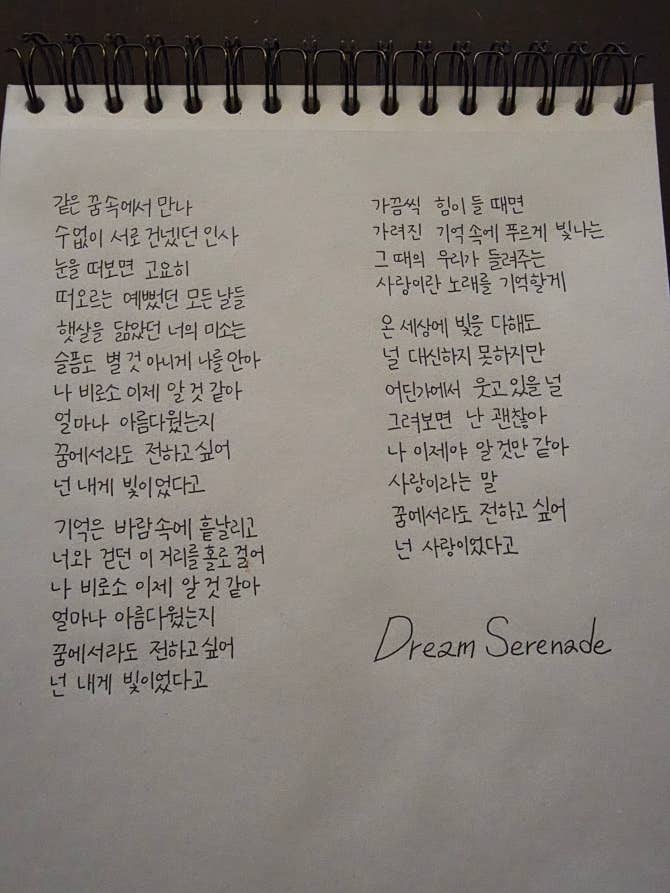 같은 꿈속에서 만나
수없이 서로 건넸던 인사
눈을 떠보면 고요히
떠오르는 예뻤던 모든 날들
햇살을 닮았던 너의 미소는
슬픔도 별 것 아니게 나를 안아
나 비로소 이제 알 것 같아
얼마나 아름다웠는지
꿈에서라도 전하고 싶어
넌 내게 빛이었다고
기억은 바람 속에 흩날리고
너와 걷던 이 거리를 홀로 걸어
나 비로소 이제 알 것 같아
얼마나 아름다웠는지
꿈에서라도 전하고 싶어
넌 내게 빛이었다고
가끔씩 힘이 들 때면
가려진 기억 속에 푸르게 빛나는
그 때의 우리가 들려주는
사랑이란 노래를 기억할게
온 세상에 빛을 다해도
널 대신하지 못하지만
어딘가에서 웃고 있을 널
그려보면 난 괜찮아
나 이제야 알 것만 같아
사랑이라는 말
꿈에서라도 전하고 싶어
넌 사랑이었다고
Dream Serenade